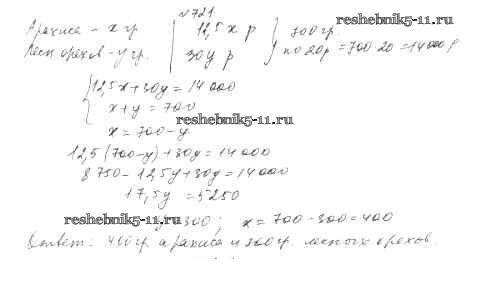 №721
reshebnik5-11.ru
Арахиса - x гр | 12,5x р } 700гр.
Лесн. орехов - y гр. | 30y р } по 20р = 700·20 = 14000 р
{ 12,5x + 30y = 14000
x + y = 700
x = 700 - y
reshebnik5-11.ru
12,5(700-y) + 30y = 14000
8750 - 12,5y + 30y = 14000
17,5y = 5250
reshebnik5-11.ru = 300; x = 700 - 300 = 400
Ответ: 400гр. арахиса и 300гр. лесных орехов.